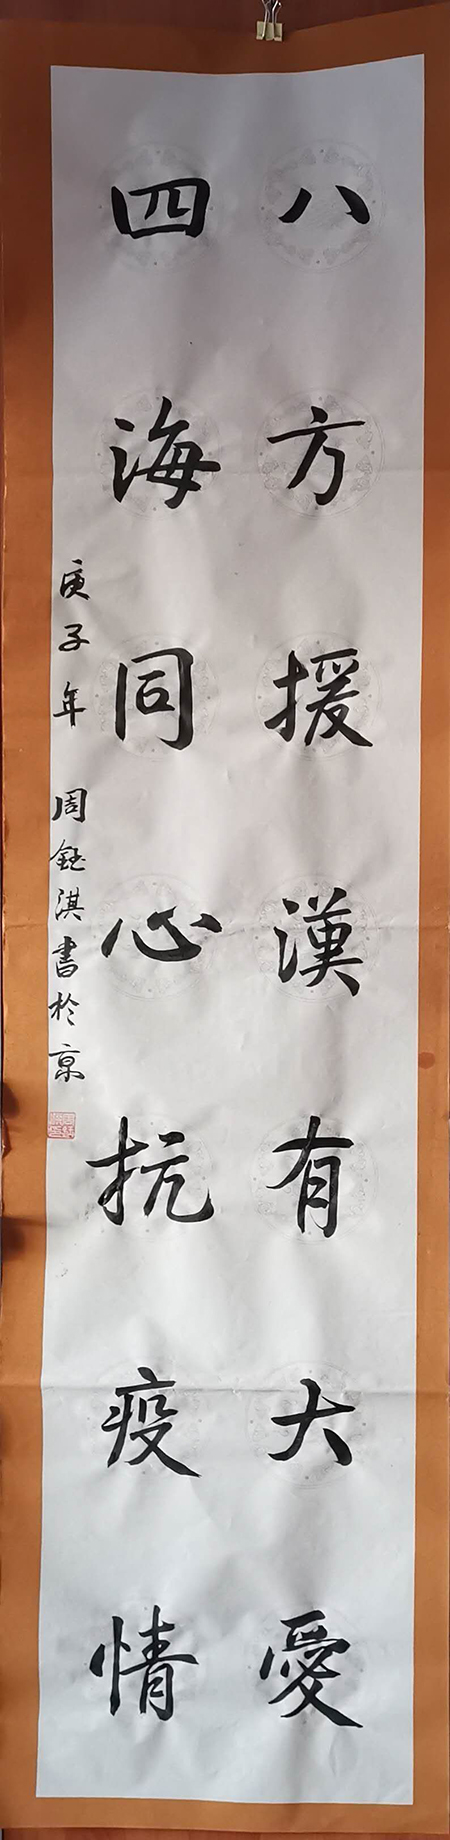 八方援漢有大愛
四海同心抗疫情
庚子年 周鈺淇書於京